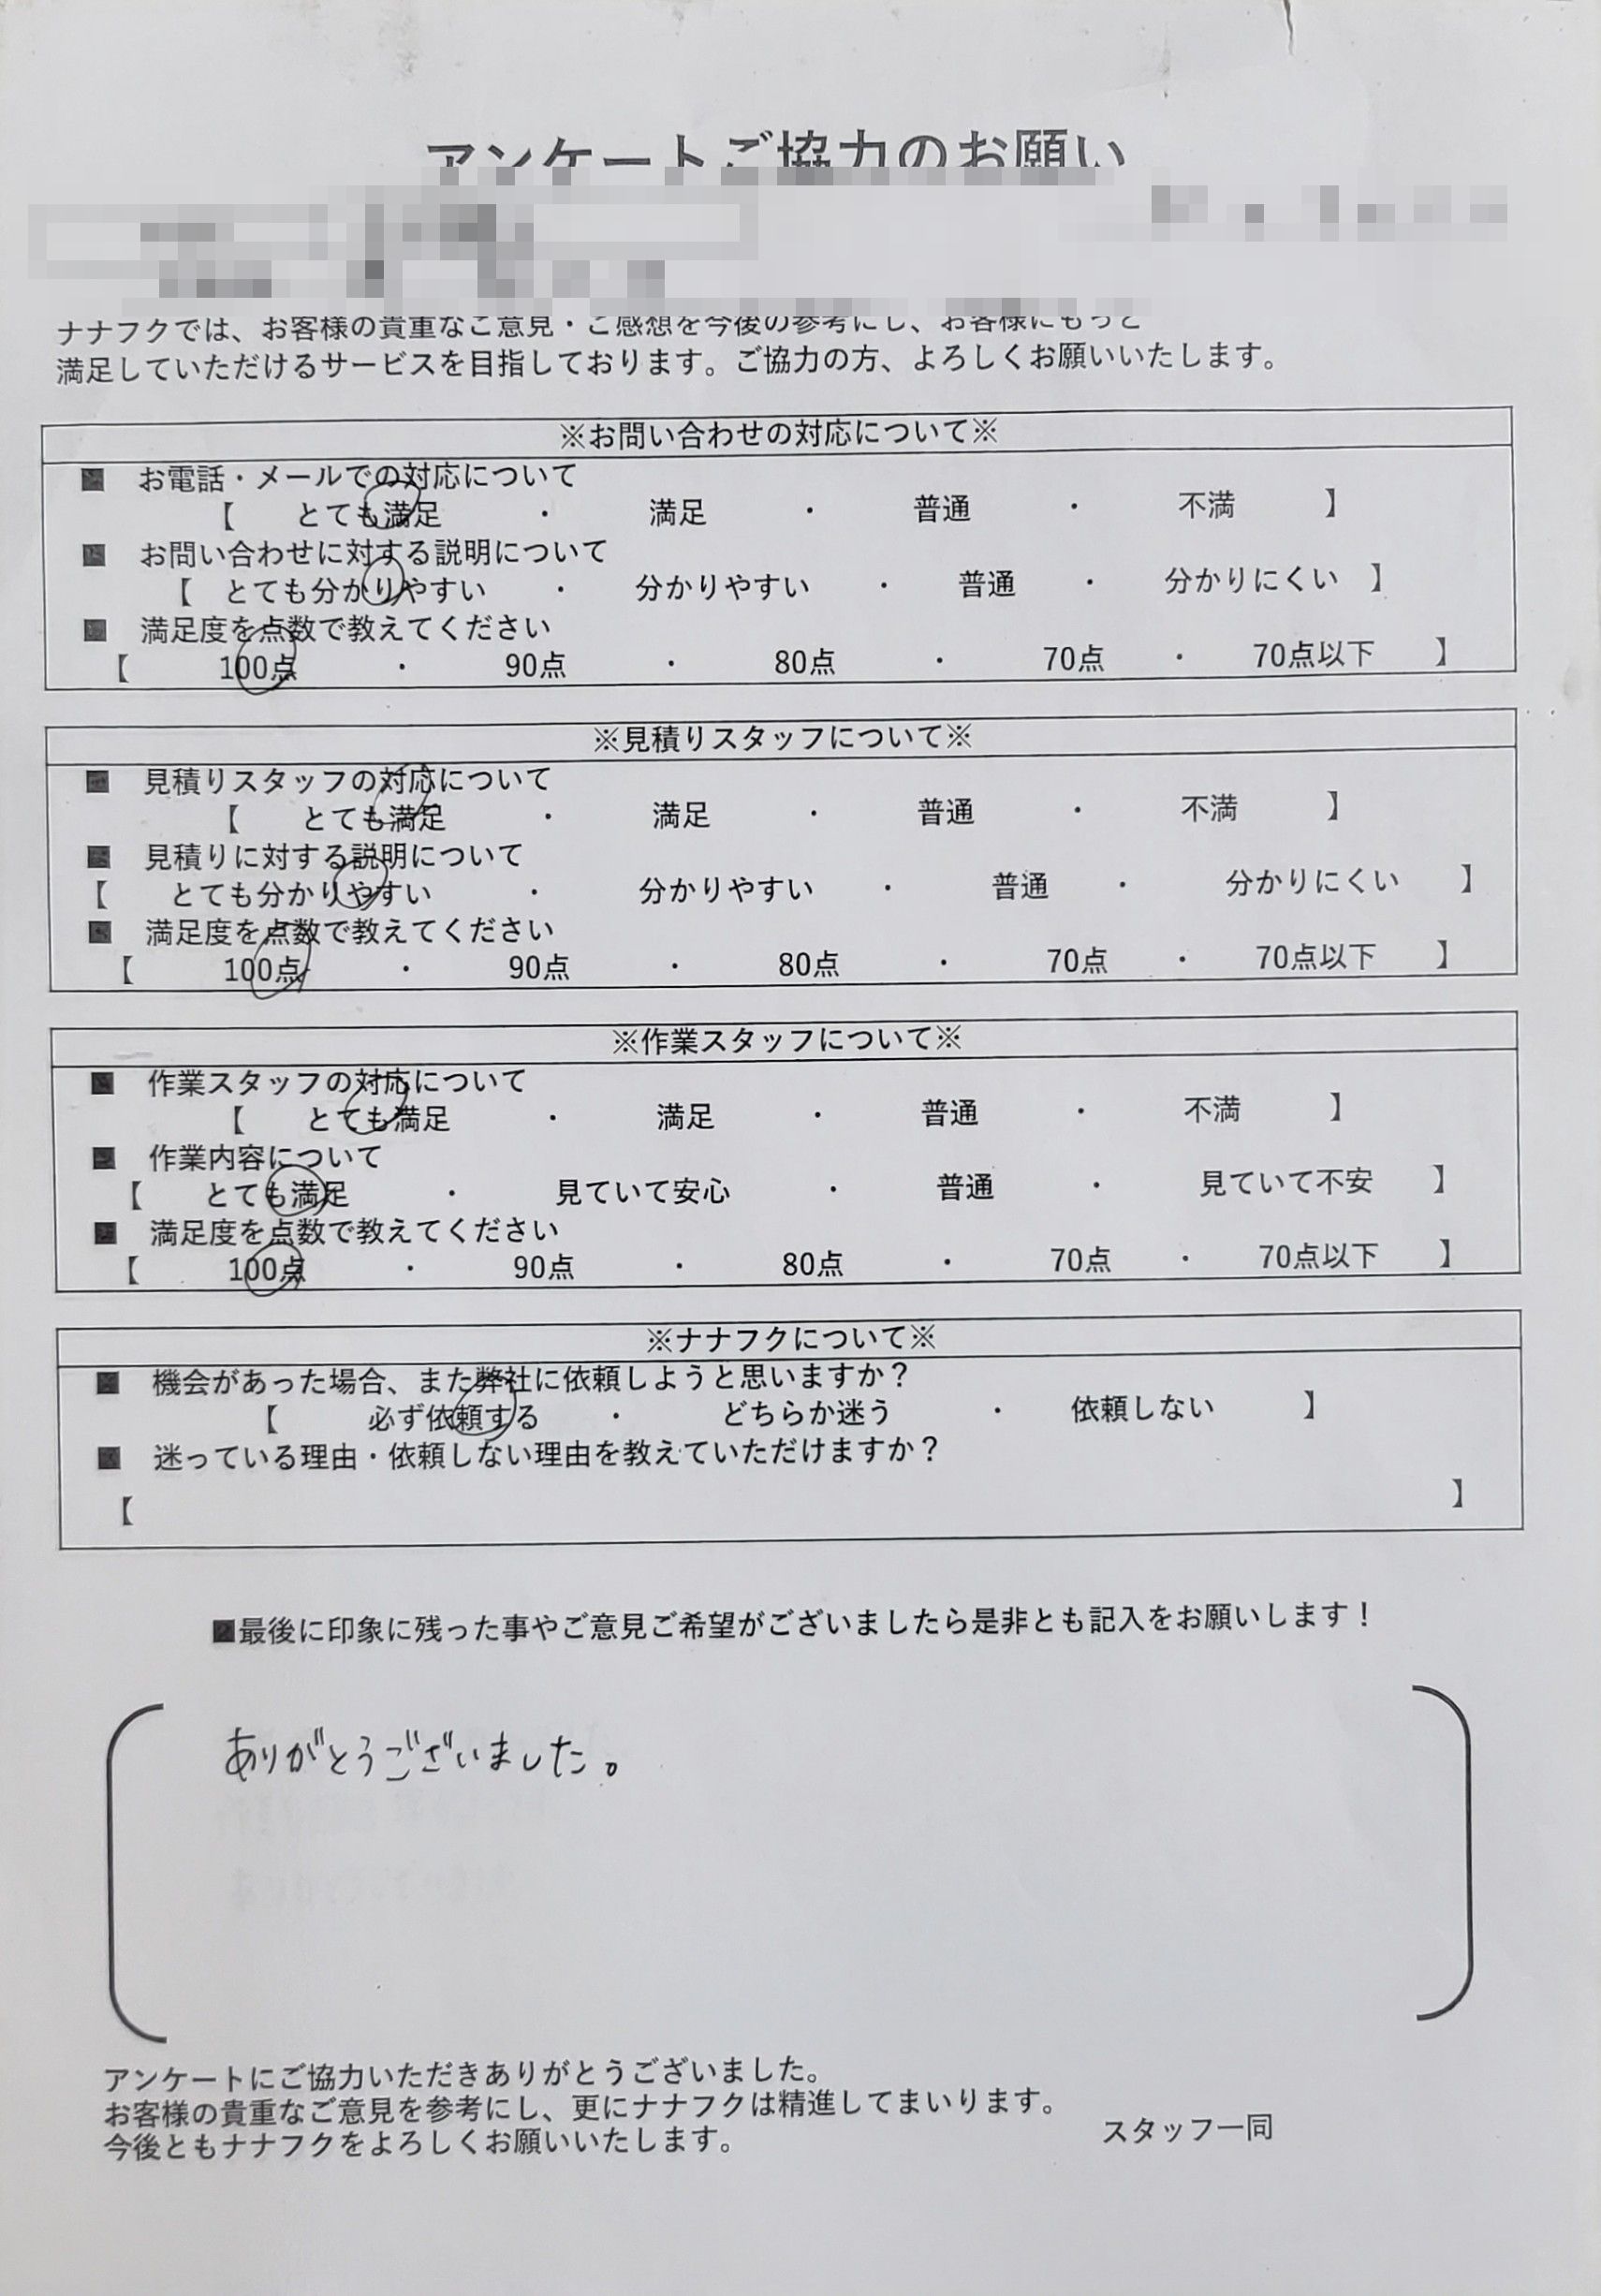 アンケートご協力のお願い
ナナフクでは、お客様の貴重なご意見・ご感想を今後の参考にし、お客様にもっと
満足していただけるサービスを目指しております。ご協力の方、よろしくお願いいたします。
※お問い合わせの対応について※
■ お電話・メールでの対応について
【 とても満足 ・ 満足 ・ 普通 ・ 不満 】
■ お問い合わせに対する説明について
【 とても分かりやすい ・ 分かりやすい ・ 普通 ・ 分かりにくい 】
■ 満足度を点数で教えてください
【 100点 ・ 90点 ・ 80点 ・ 70点 ・ 70点以下 】
※見積りスタッフについて※
■ 見積りスタッフの対応について
【 とても満足 ・ 満足 ・ 普通 ・ 不満 】
■ 見積りに対する説明について
【 とても分かりやすい ・ 分かりやすい ・ 普通 ・ 分かりにくい 】
■ 満足度を点数で教えてください
【 100点 ・ 90点 ・ 80点 ・ 70点 ・ 70点以下 】
※作業スタッフについて※
■ 作業スタッフの対応について
【 とても満足 ・ 満足 ・ 普通 ・ 不満 】
■ 作業内容について
【 とても満足 ・ 見ていて安心 ・ 普通 ・ 見ていて不安 】
■ 満足度を点数で教えてください
【 100点 ・ 90点 ・ 80点 ・ 70点 ・ 70点以下 】
※ナナフクについて※
■ 機会があった場合、また弊社に依頼しようと思いますか？
【 必ず依頼する ・ どちらか迷う ・ 依頼しない 】
■ 迷っている理由・依頼しない理由を教えていただけますか？
【 】
■最後に印象に残った事やご意見ご希望がございましたら是非とも記入をお願いします！
ありがとうございました。
アンケートにご協力いただきありがとうございました。
お客様の貴重なご意見を参考にし、更にナナフクは精進してまいります。
今後ともナナフクをよろしくお願いいたします。
スタッフ一同